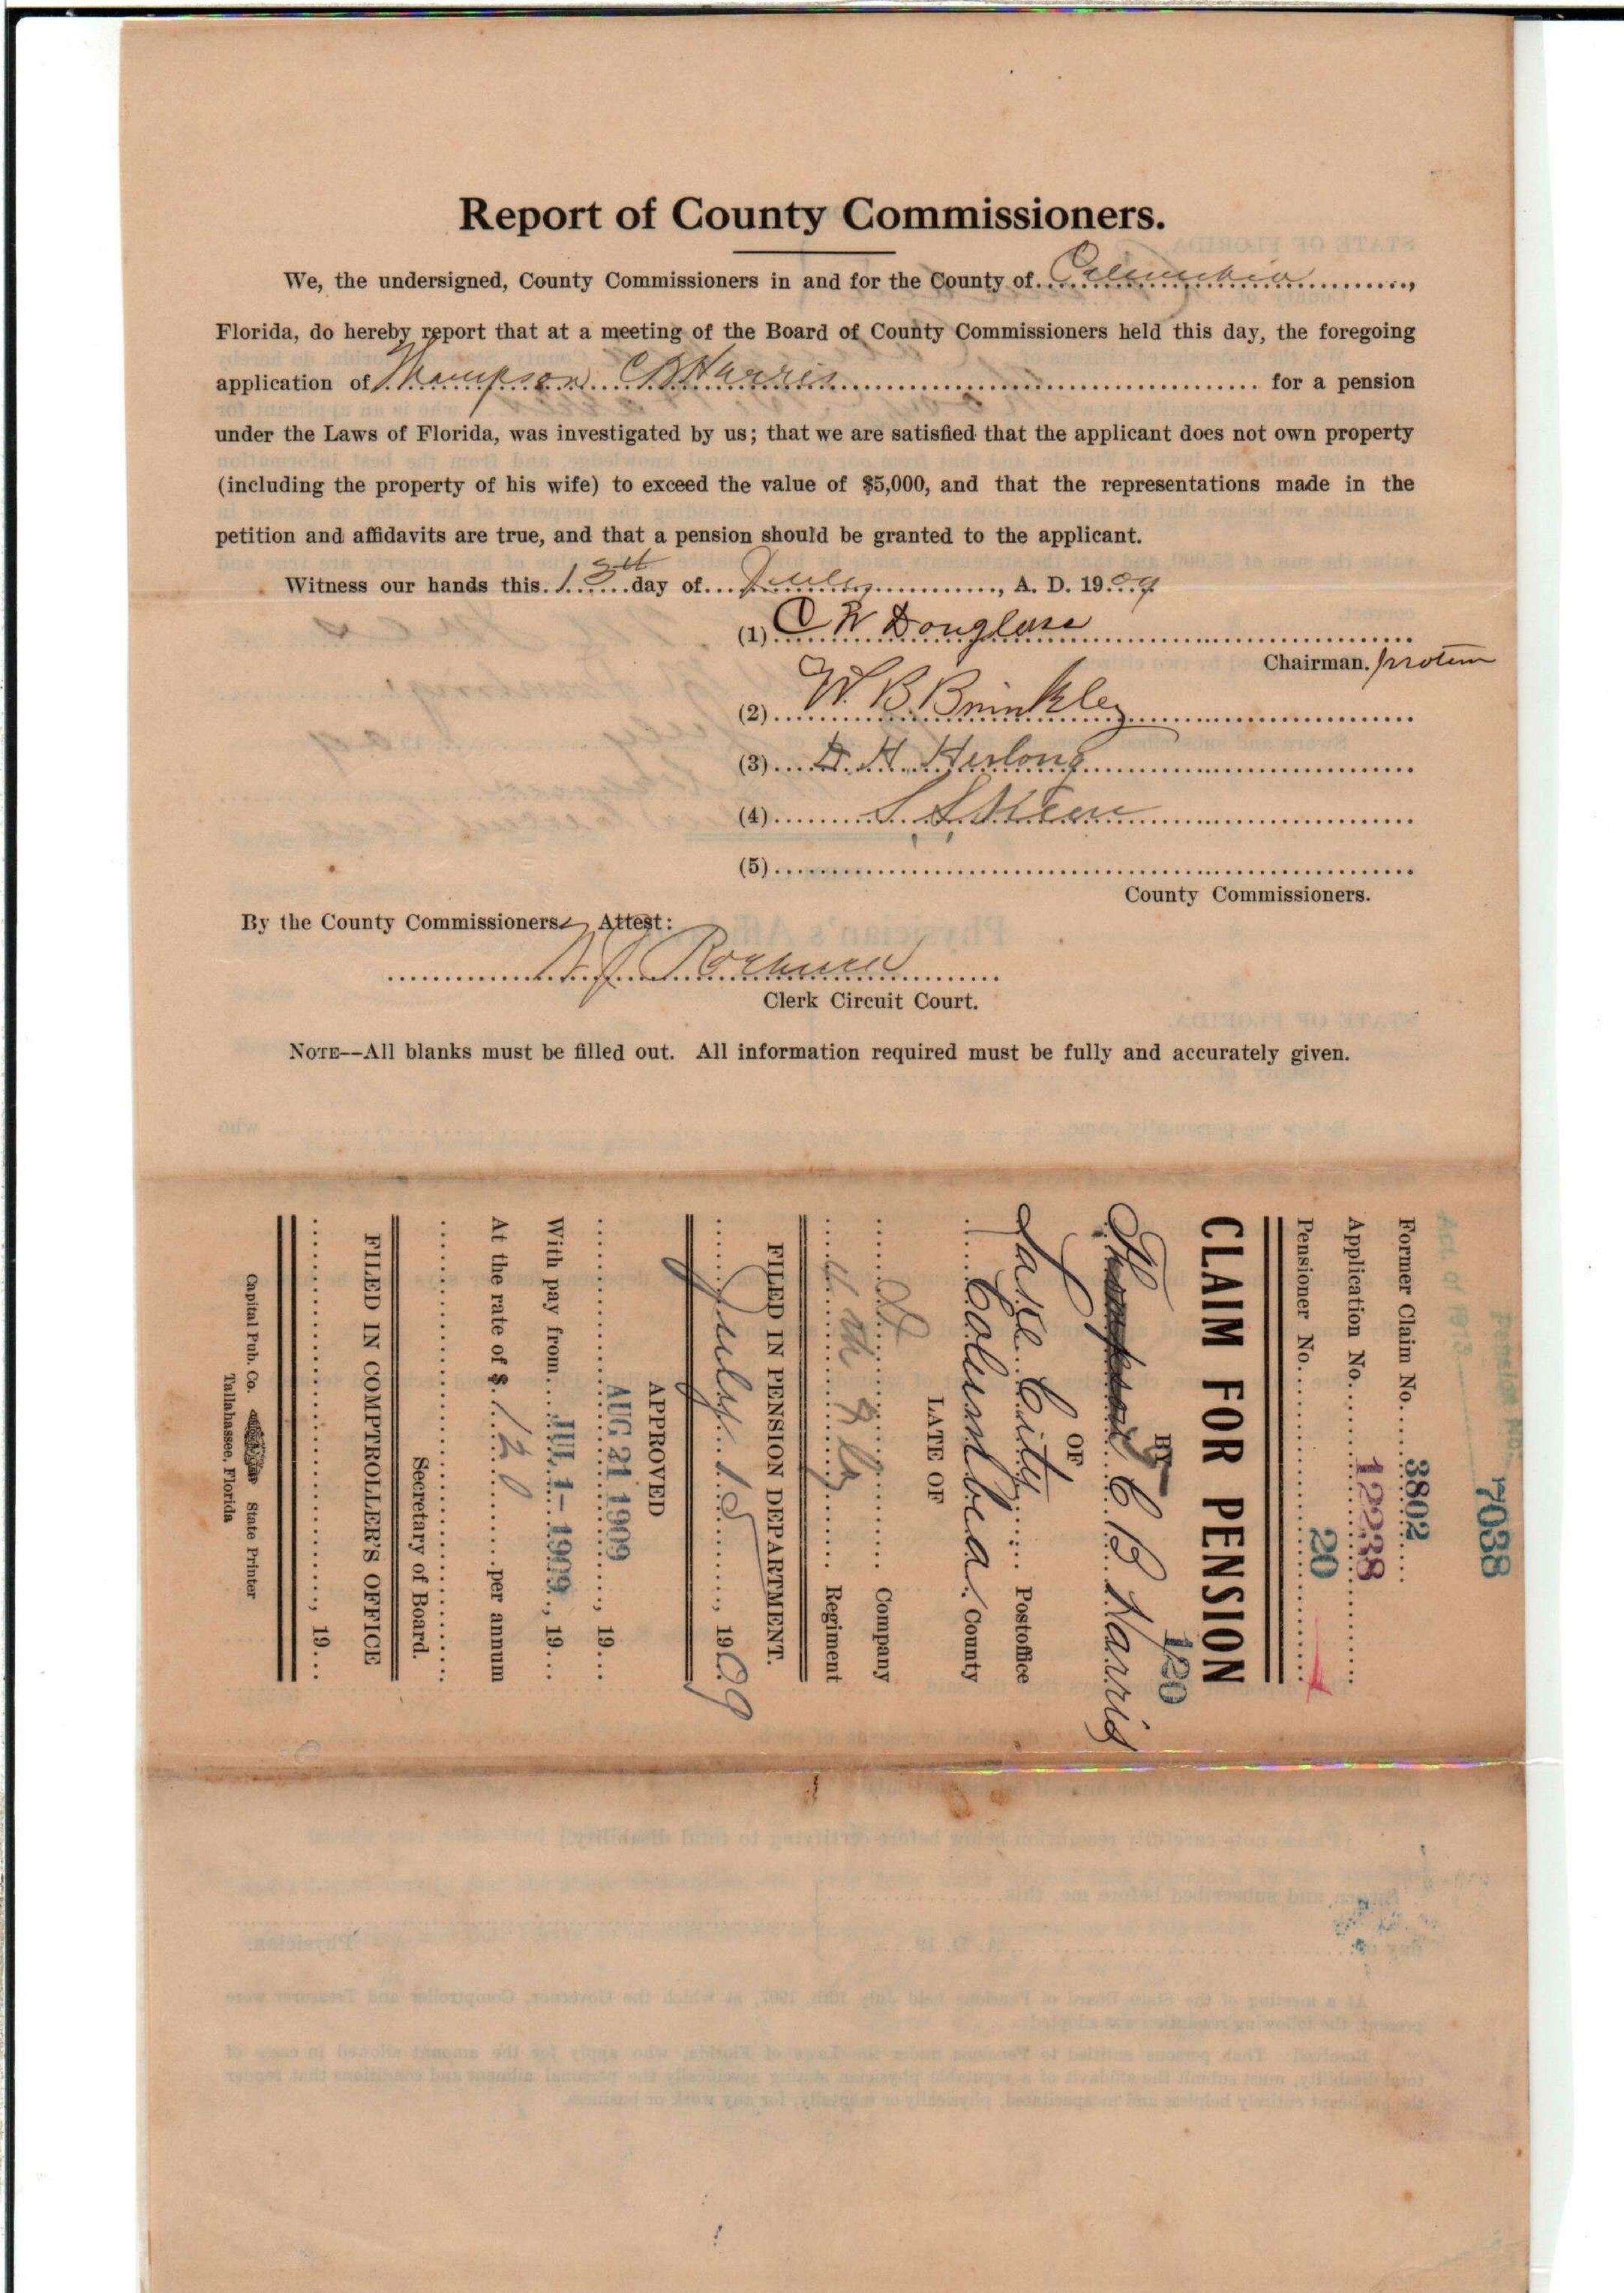 Report of County Commissioners.
We, the undersigned, County Commissioners in and for the County of Columbia,
Florida, do hereby report that at a meeting of the Board of County Commissioners held this day, the foregoing
application of Thompson C B Harris for a pension
under the Laws of Florida, was investigated by us; that we are satisfied that the applicant does not own property
(including the property of his wife) to exceed the value of $5,000, and that the representations made in the
petition and affidavits are true, and that a pension should be granted to the applicant.
Witness our hands this 13th day of July, A. D. 1909
(1) C W Douglass
Chairman. protem
(2) W. B. Brinkley
(3) H. Herlong
(4)
(5)
County Commissioners.
By the County Commissioners. Attest:
Clerk Circuit Court.
NOTE--All blanks must be filled out. All information required must be fully and accurately given.
Pension No. 7038
Act of 1913
Former Claim No. 3802
Application No. 12238
Pensioner No. 20
CLAIM FOR PENSION
120
BY
Thompson C B Harris
OF
Lake City Postoffice
Columbia County
LATE OF
Company
4th Fla Regiment
FILED IN PENSION DEPARTMENT.
July 15, 1909
APPROVED
AUG 21 1909, 19
With pay from JUL 1-1909, 19
At the rate of $ 120 per annum
Secretary of Board.
FILED IN COMPTROLLER'S OFFICE
, 19
Capital Pub. Co. State Printer
Tallahassee, Florida